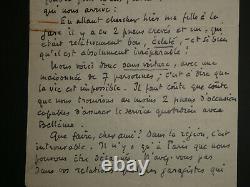 qui nous arrive !
En allant chercher hier ma fille à la
gare il y a eu 2 pneus crevés et un, qui
était relativement bon, éclaté, et si bien
qu'il est absolument irréparable !
Nous voici donc sans voiture, avec une
maisonnée de 7 personnes ; c'est à dire que
la vie est impossible. Il faut coûte que coûte
que nous trouvions au moins 2 pneus d'occasion
capables d'assurer le service quotidien avec
Bellême.
Que faire, cher ami ? Dans la région, c'est
introuvable. Il n'y a qu'à Paris que nous
pouvons être dépannés. Avez-vous pas
dans vos relations des garagistes qui